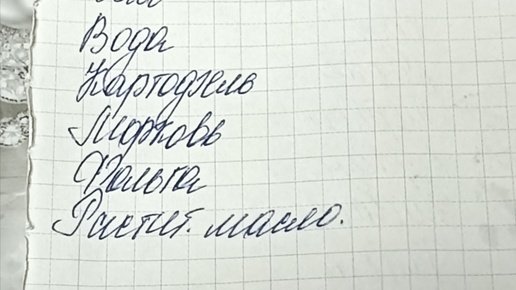 Вода
Картофель
Морковь
Фольга
Растит. масло.